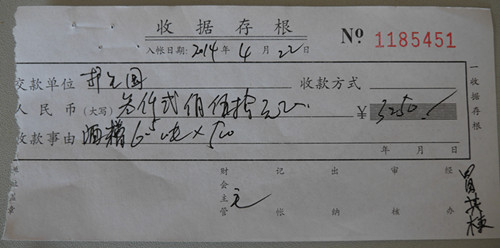 收据存根
№ 1185451
入帐日期: 2014 年 4 月 22 日
交款单位 收款方式
人民币(大写) 叁仟贰佰伍拾元正 ¥ 3250/
收款事由 酒糟 6.5吨×500
年 月 日
财会主管 记帐 出纳 审核 经办
一收据存根